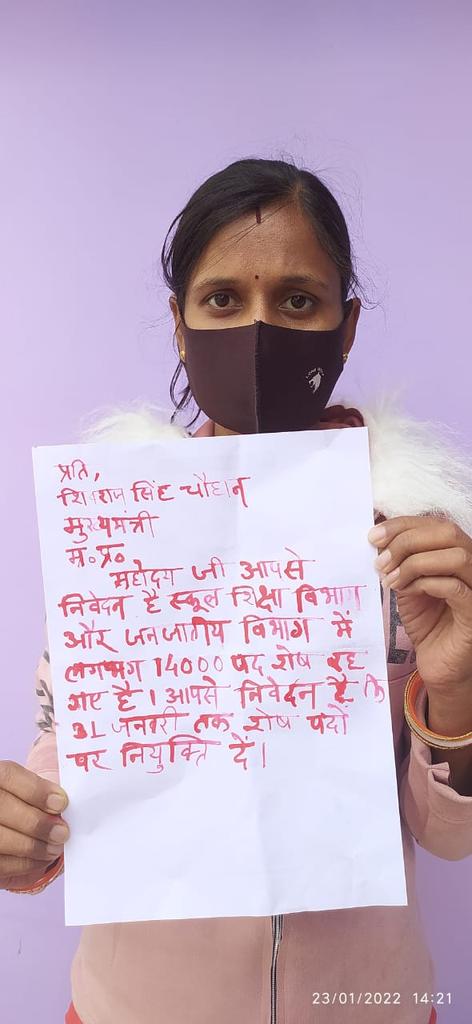 प्रति,
शिवराज सिंह चौहान
मुख्यमंत्री
म.प्र.
महोदय जी आपसे
निवेदन है स्कूल शिक्षा विभाग
और जनजातीय विभाग में
लगभग 14000 पद शेष रह
गए है। आपसे निवेदन है कि
31 जनवरी तक शेष पदों
पर नियुक्ति दें।
23/01/2022 14:21